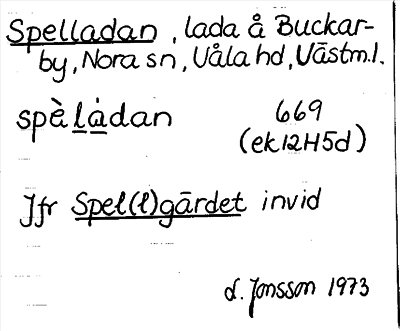 Spelladan, lada å Buckar-
by, Nora sn, Våla hd, Västm.l.
spè làdan 669
(ek 12H5d)
Jfr Spel(l)gärdet invid
d. Jonsson 1973